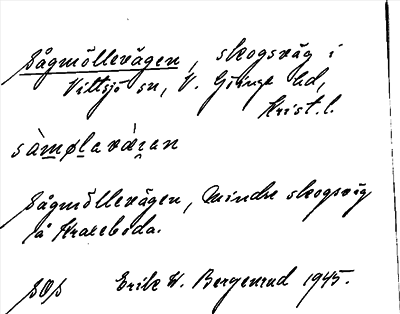 Sågmöllevägen, skogsväg i
Vittsjö sn, V. Göinge hd,
Krist. l.
sàmølavǽran
Sågmöllevägen, mindre skogsväg
å Kraxeboda.
SOS Erik W. Bergenrud 1945.